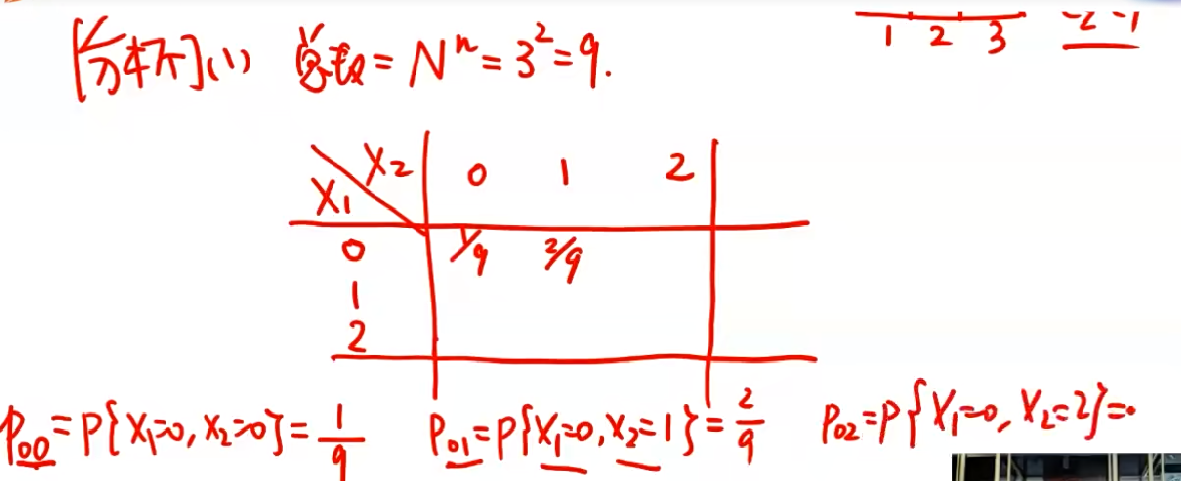 [分析](1) 总数 = Nⁿ = 3² = 9.
1 2 3 -2 -1
X₁ X₂ 0 1 2
0 1/9 2/9
1
2
P₀₀ = P{X₁=0, X₂=0} = 1/9 P₀₁ = P{X₁=0, X₂=1} = 2/9 P₀₂ = P{X₁=0, X₂=2} = 0